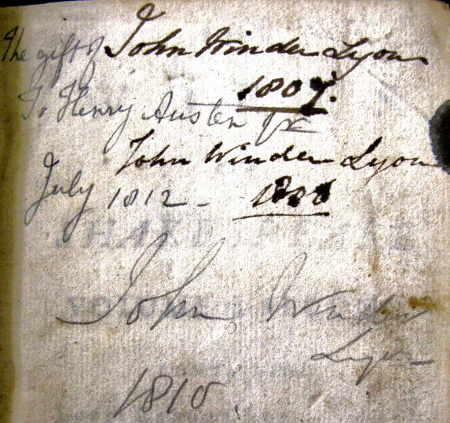 The gift of John Winder Lyon
1807.
To Henry Austen Jr
John Winder Lyon
July 1812 -
John Winder
Lyon
1810.